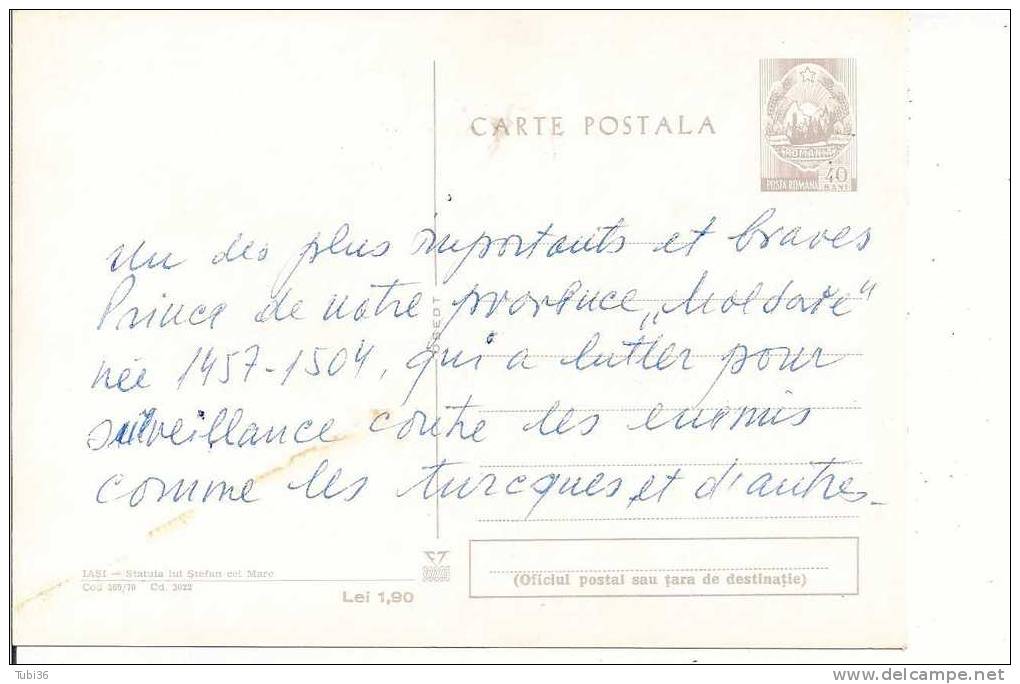 CARTE POSTALA
POSTA ROMANA 40 BANI
Un des plus importants et braves
Prince de notre province „Moldavie"
née 1457-1504, qui a lutter pour
surveillance contre les enemis
comme les turcques, et d'autres.
IAȘI — Statuia lui Ștefan cel Mare
Cod 365/70 Cd. 3022
Lei 1,90
(Oficiul poștal sau țara de destinație)
Tubi36
delcampe.net